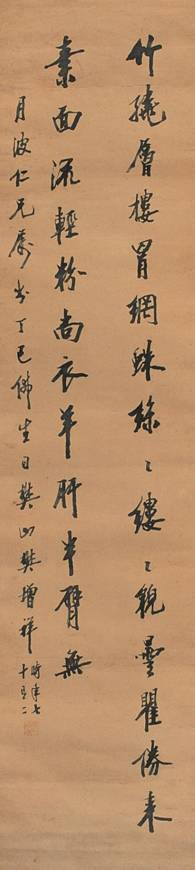 竹繞層樓罥網蛛絲絲縷縷貌曇瞿勝来
素面流輕粉尚衣羊肝半臂無
月波仁兄屬书丁巳佛生日樊山樊增祥
時年七
十有二